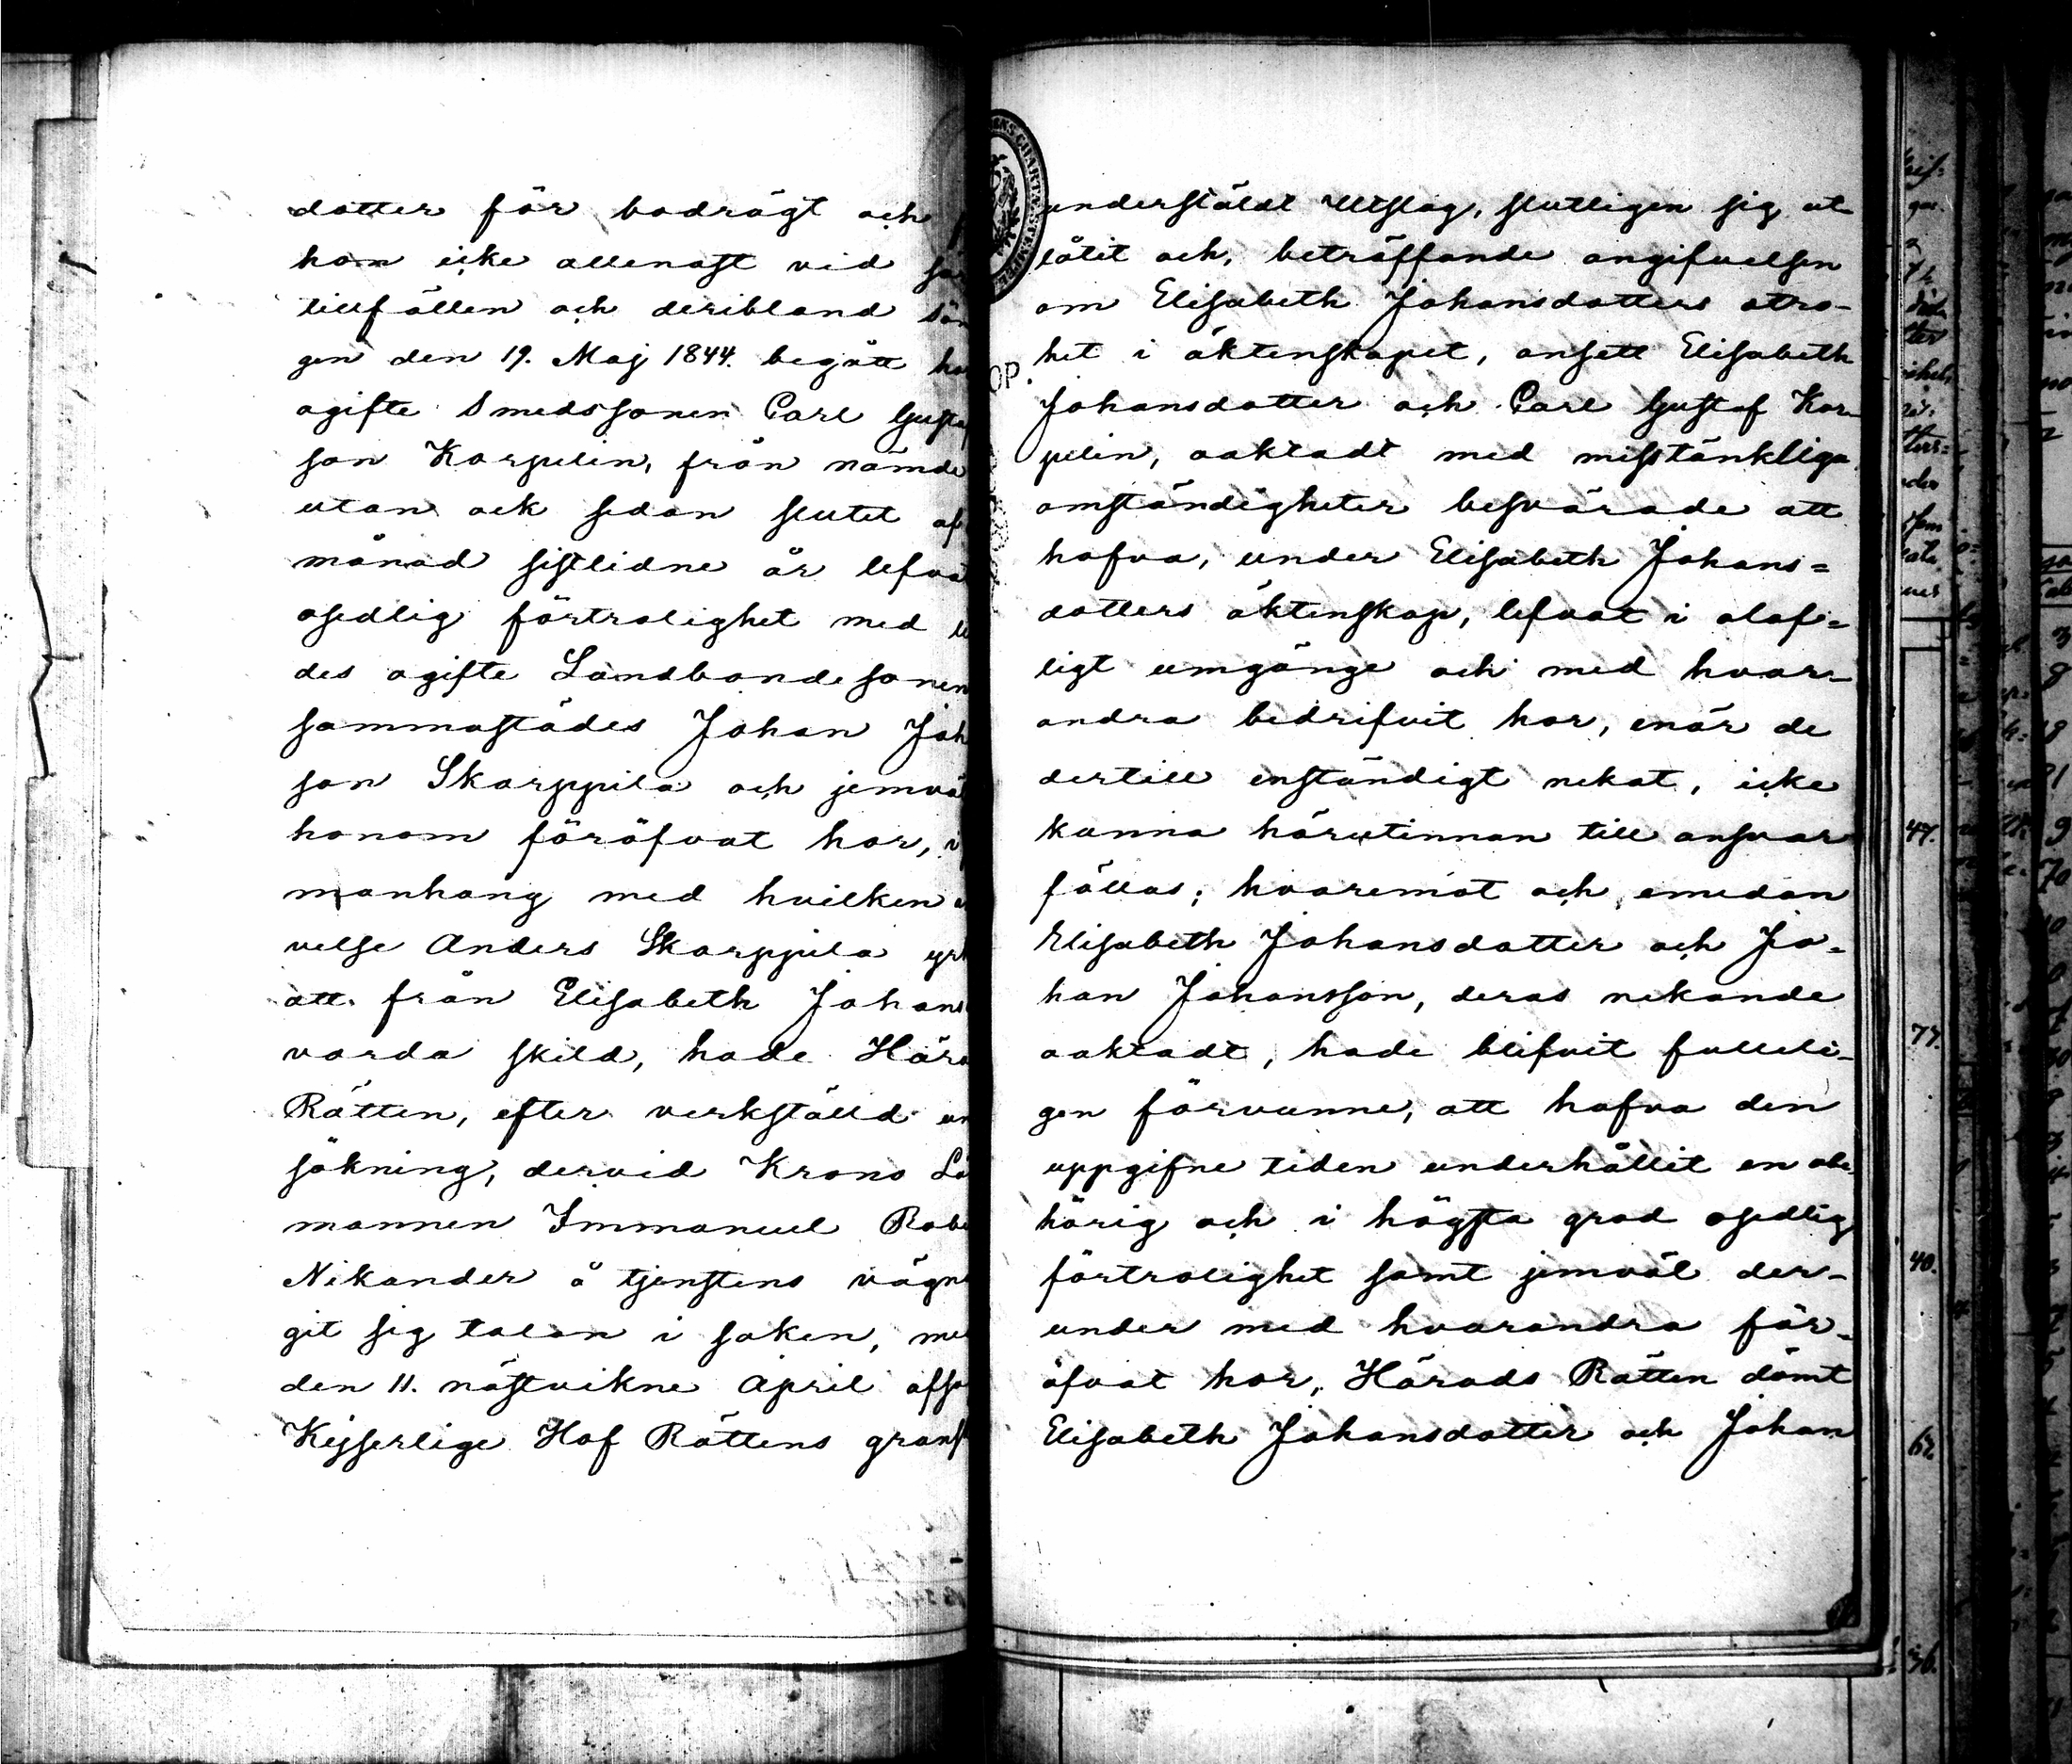 dotter för bodrägt och
hon icke allenast vid
tillfällen och deribland Sön
gen den 19. Maj 1844. begått
ogifte Smedssonen Carl Gustaf
son Korpelin, från nämde
utan ock sedan slutet af
månad sistlidne år lefvat
osedlig förtrolighet med
des ogifte Landbondesonen
sammastädes Johan Joh
son Skarppila och jemväl
honom föröfvat hor,
manhang med hvilken
velse Anders Skarppila yrk
att från Elisabeth Johans
varda skild, hade Härads
Rätten, efter verkställd un
sökning, dervid Krono Läns
mannen Immanuel Robert
Nikander å tjenstens vägnar
git sig talan i saken, med
den 11. nästvikne April afsa
Kejserlige Hof Rättens gransk
understäldt Utslag, slutligen sig ut
låtit och, beträffande angifvelsen
om Elisabeth Johansdotters otro-
het i äktenskapet, ansett Elisabeth
OP.
Johansdotter och Carl Gustaf Kor-
pelin, oaktadt med misstänkliga
omständigheter besvärade att
hafva, under Elisabeth Johans=
dotters äktenskap, lefvat i olof=
ligt umgänge och med hvar-
andra bedrifvit hor, enär de
dertill enständigt nekat, icke
kunna härutinnan till ansvar
fällas; hvaremot och emedan
Elisabeth Johansdotter och Jo=
han Johansson, deras nekande
oaktadt, hade blifvit fulleli-
gen förvunne, att hafva den
uppgifne tiden underhållit en obe-
hörig och i högsta grad osedlig
förtrolighet samt jemväl der-
under med hvarandra för-
öfvat hor, Härads Rätten dömt
Elisabeth Johansdotter och Johan
47.
77.
40.
62.